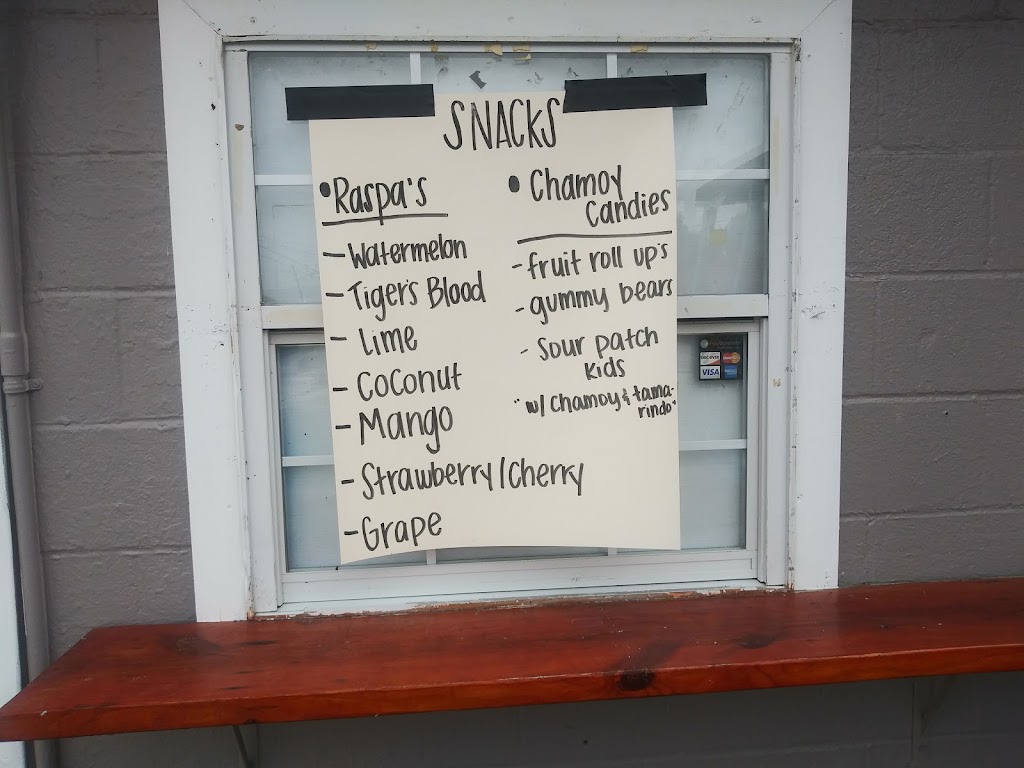 SNACKS
• Raspa's
- Watermelon
- Tiger's Blood
- Lime
- Coconut
- Mango
- Strawberry/Cherry
- Grape
• Chamoy
Candies
- fruit roll up's
- gummy bears
- Sour patch
kids
"w/ Chamoy & tama-
rindo"
DISCOVER
VISA